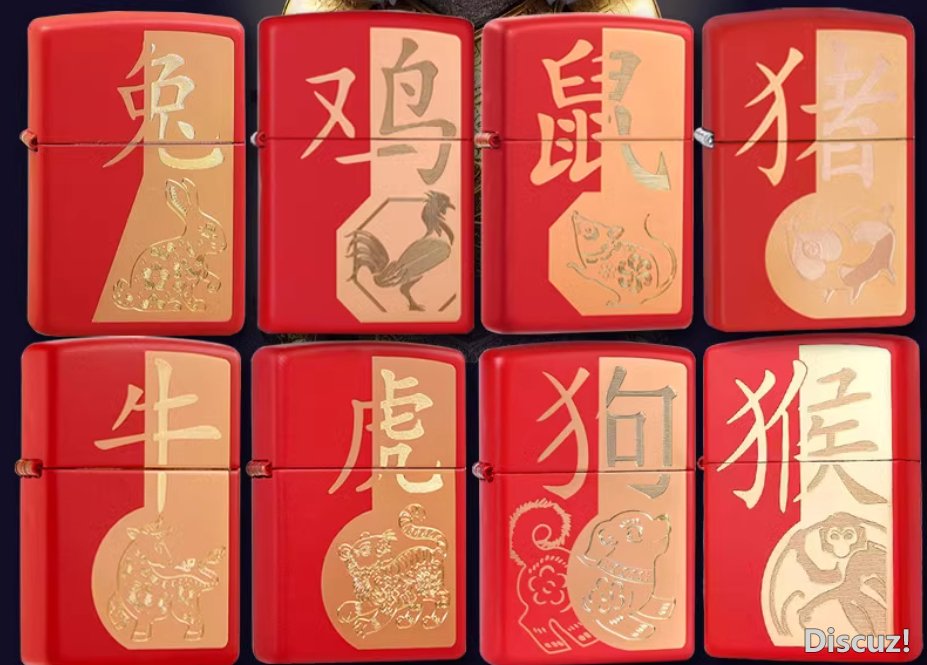 兔
鸡
鼠
猪
牛
虎
狗
猴
Discuz!